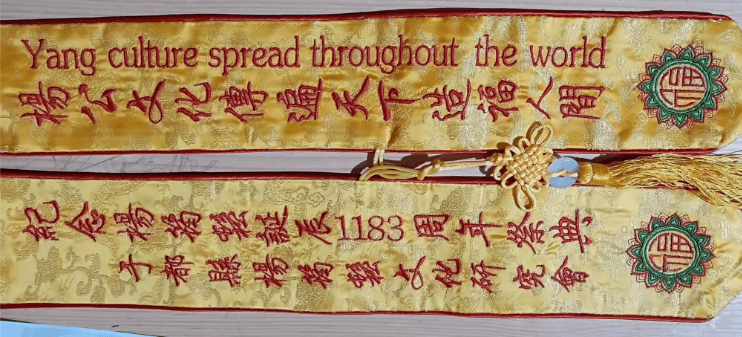 Yang culture spread throughout the world
楊公文化傳遍天下造福人間
福
紀念楊筠松誕辰1183周年祭典
于都縣楊筠松文化研究會
福